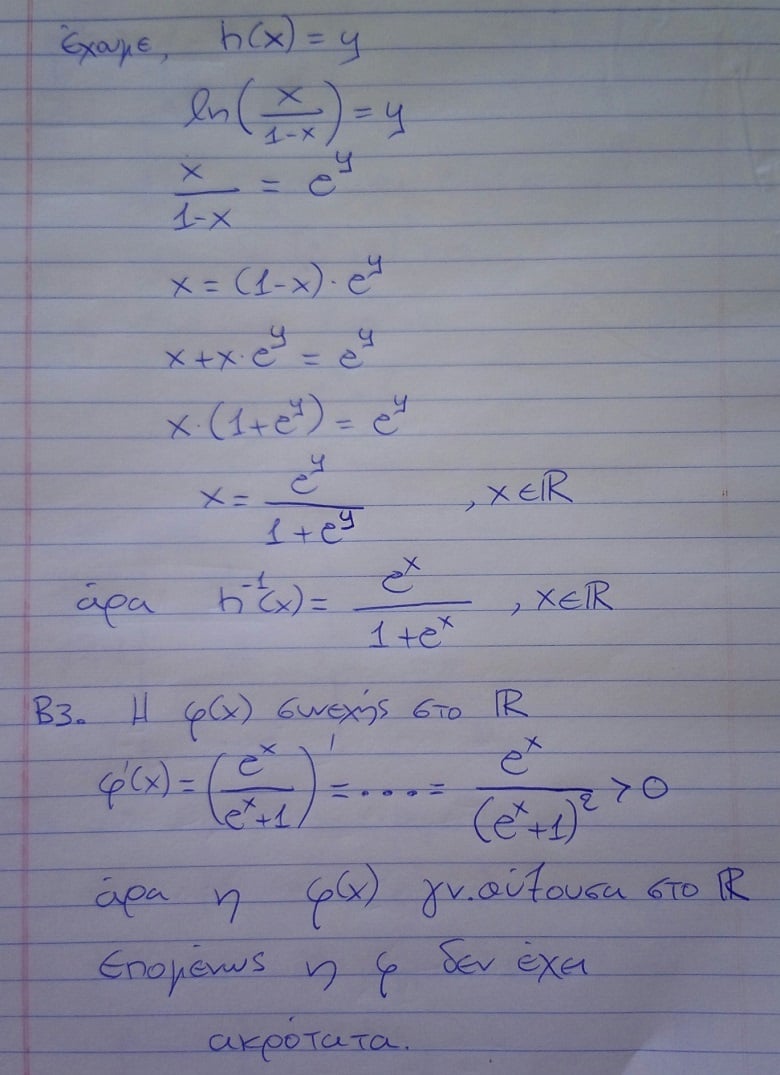 έχουμε, h(x) = y
ln(x/(1-x)) = y
x/(1-x) = e^y
x = (1-x)·e^y
x+x·e^y = e^y
x·(1+e^y) = e^y
x = e^y/(1+e^y) , x∈ℝ
άρα h^-1(x) = e^x/(1+e^x) , x∈ℝ
Β3. Η φ(x) συνεχής στο ℝ
φ'(x) = (e^x/(e^x+1))' = .... = e^x/(e^x+1)^2 > 0
άρα η φ(x) γν.αύξουσα στο ℝ
Επομένως η φ δεν έχει
ακρότατα.